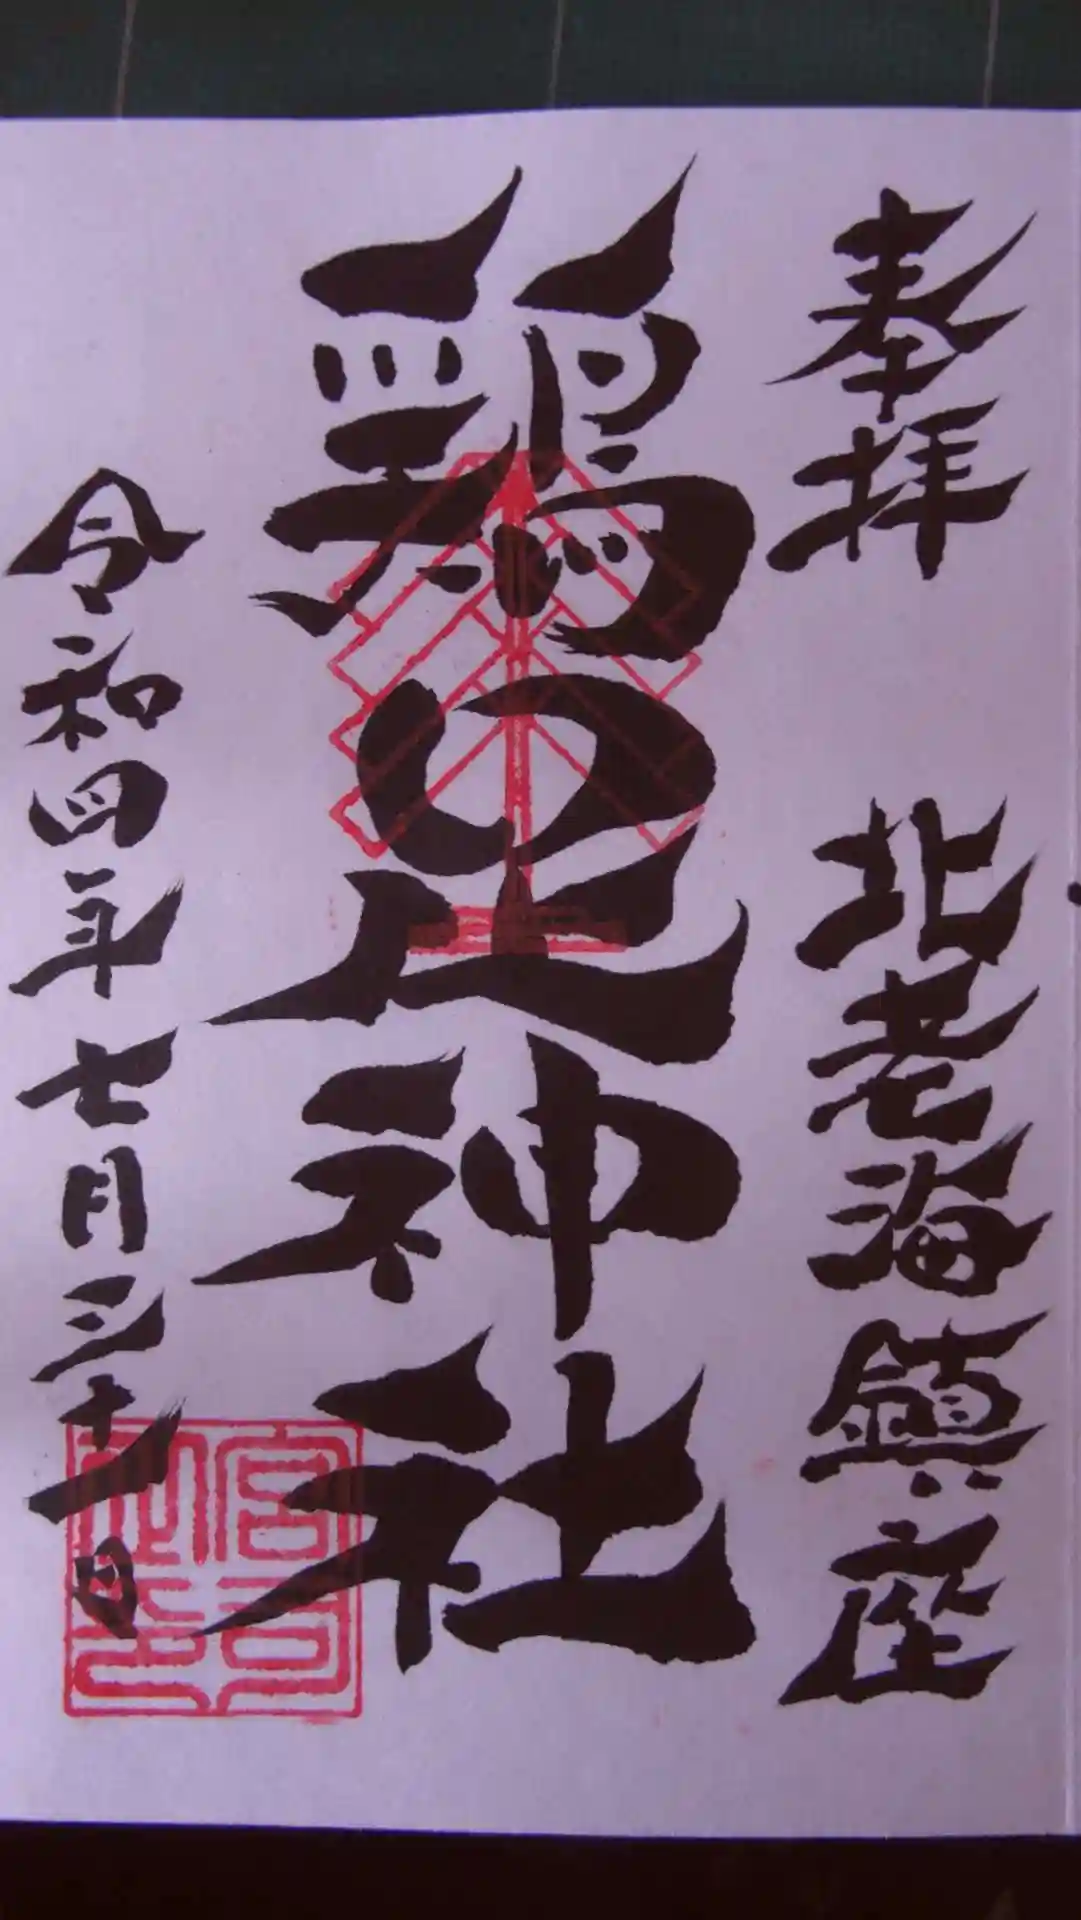 奉拝
北老海鎮座
鶏足神社
令和四年七月三十一日
宮司之印